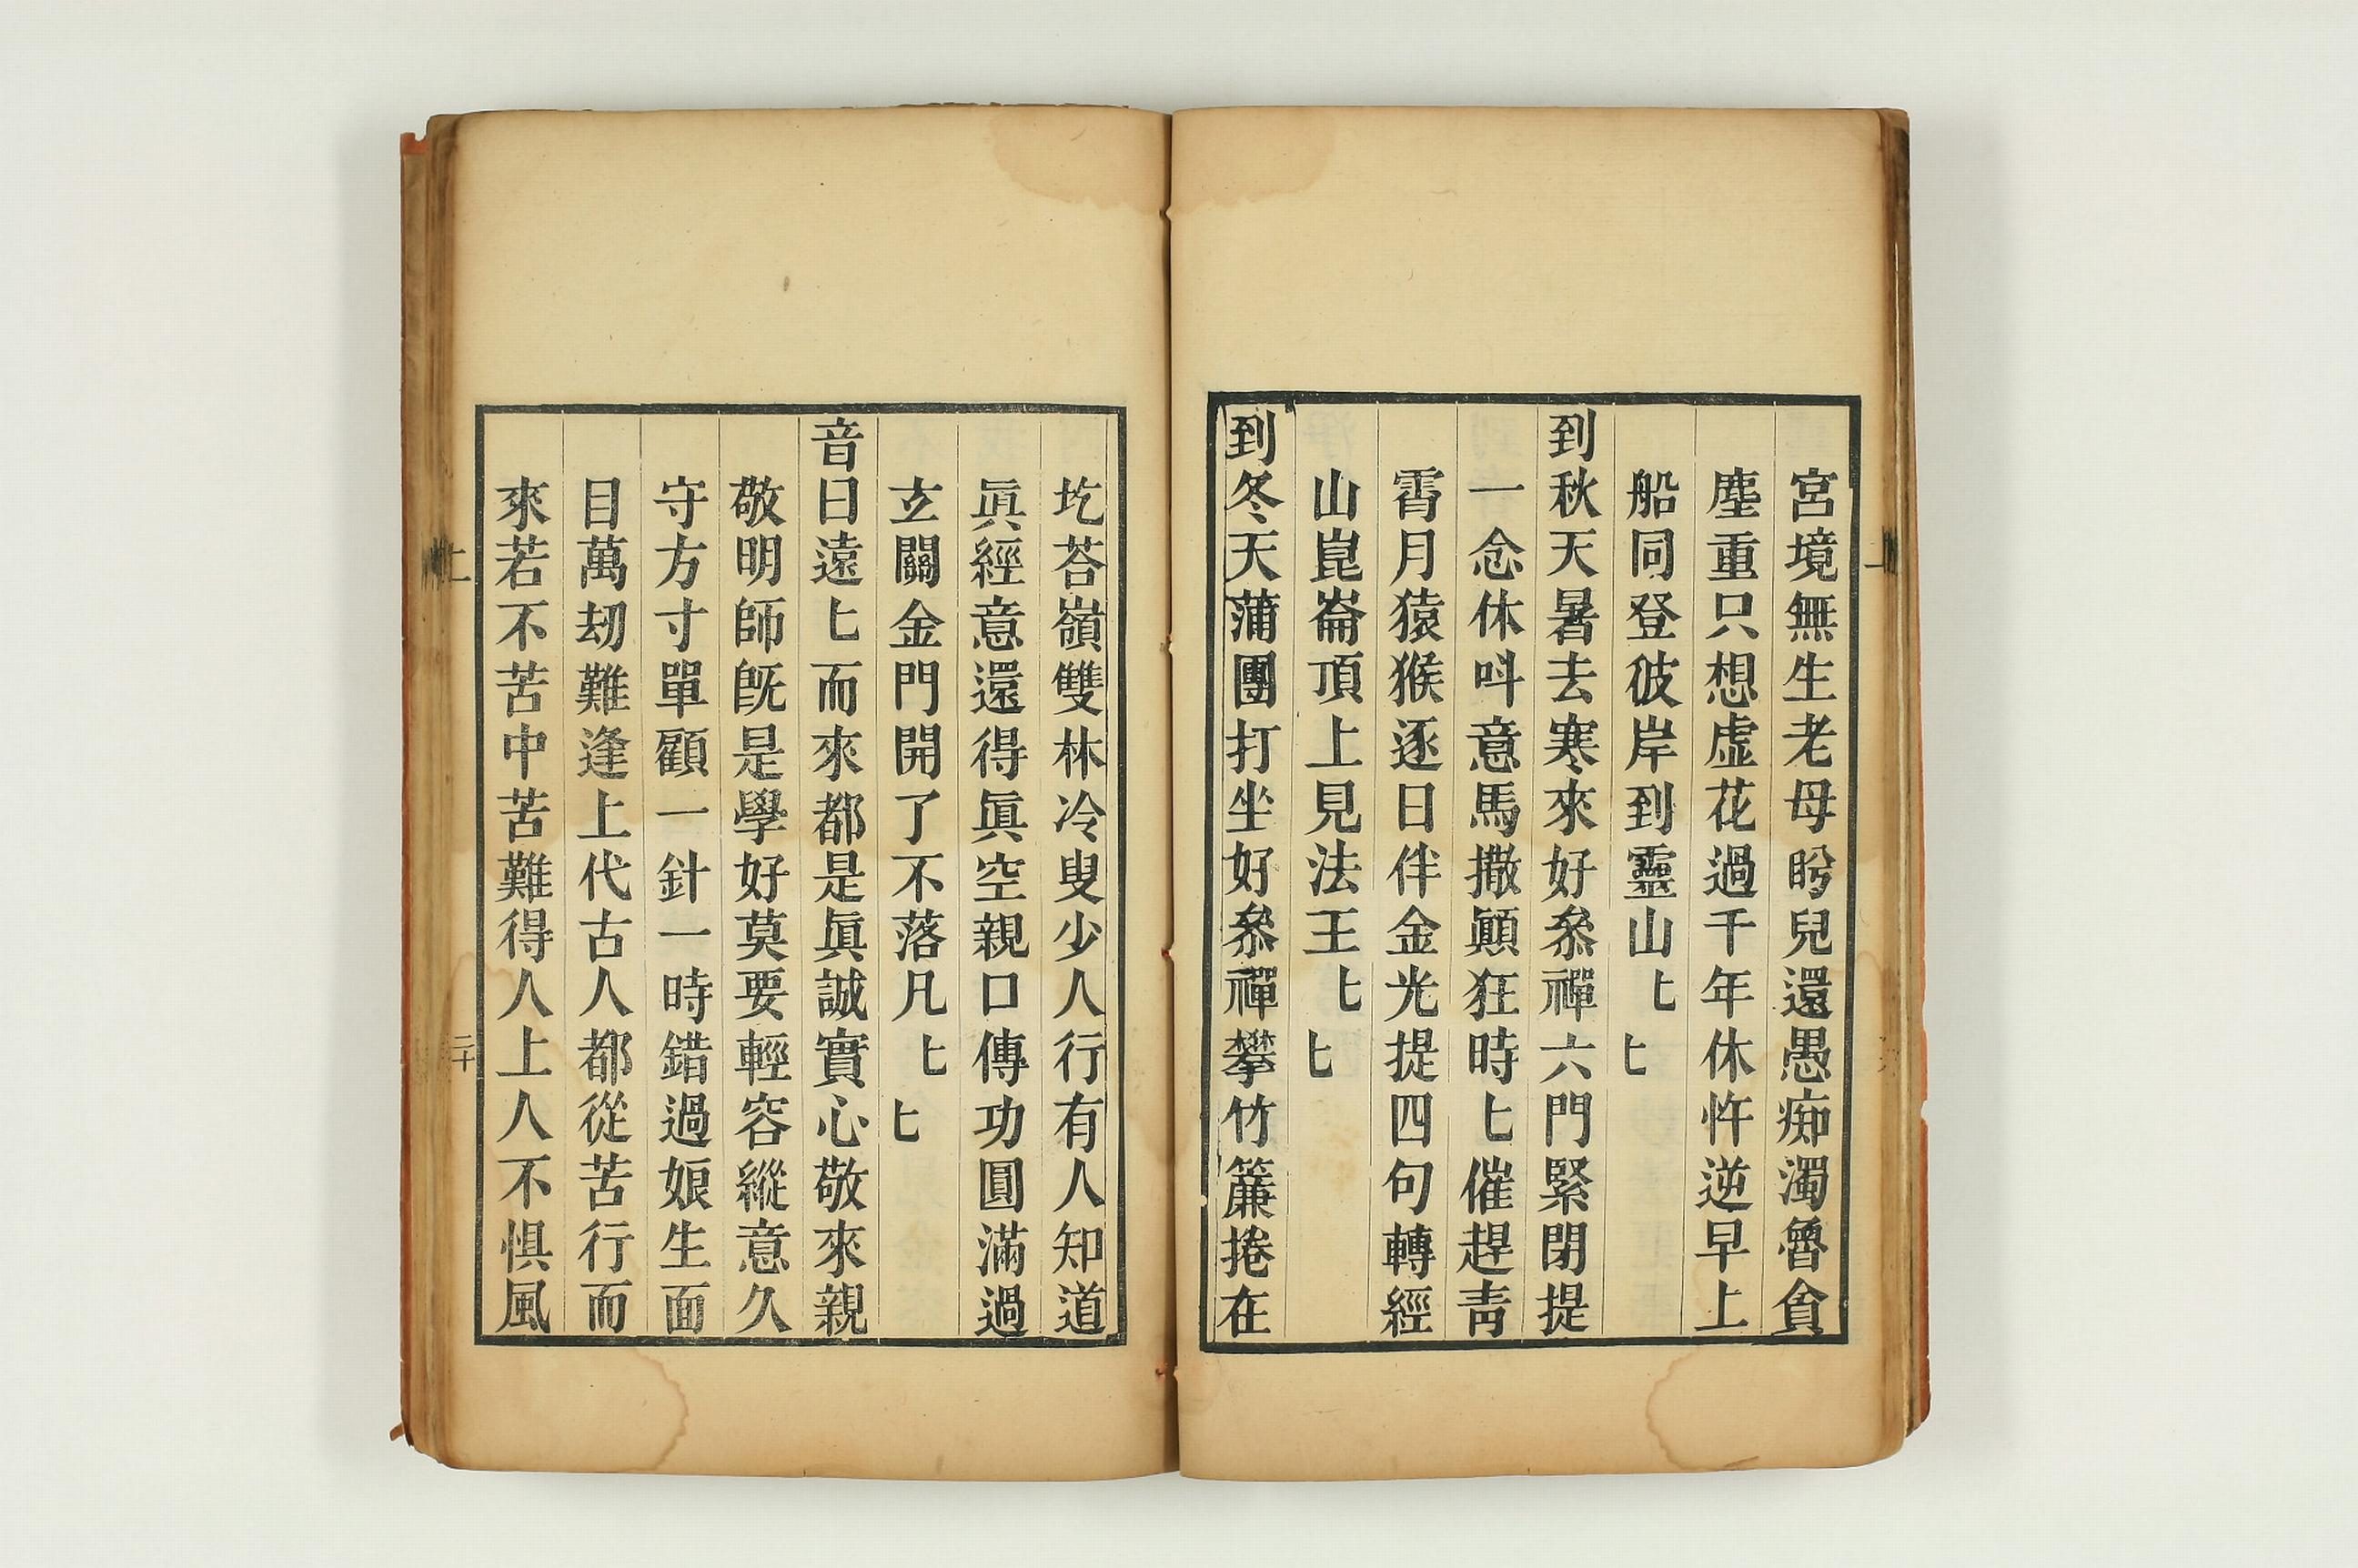 宮境無生老母盻兒還愚痴濁魯貪
塵重只想虛花過千年休忤逆早上
船同登彼岸到靈山匕匕
到秋天暑去寒來好叅禪六門緊閉提
一念休呌意馬撒顛狂時匕催趕靑
霄月猿猴逐日伴金光提四句轉經
山崑崙頂上見法王匕匕
到冬天蒲團打坐好叅禪攀竹簾捲在
圪荅嶺雙林冷叟少人行有人知道
眞經意還得眞空親口傳功圓滿過
玄關金門開了不落凡匕匕
音曰遠匕而來都是眞誠實心敬來親
敬明師旣是學好莫要輕容縱意久
守方寸單顧一針一時錯過娘生面
目萬刼難逢上代古人都從苦行而
來若不苦中苦難得人上人不惧風
上
二十